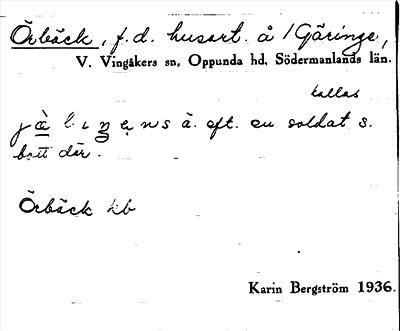 Örbäck, f.d. husart. å / Gäringe,
V. Vingåkers sn, Oppunda hd, Södermanlands län.
kallas
eft. en soldat s.
bott där.
Örbäck hb
Karin Bergström 1936.